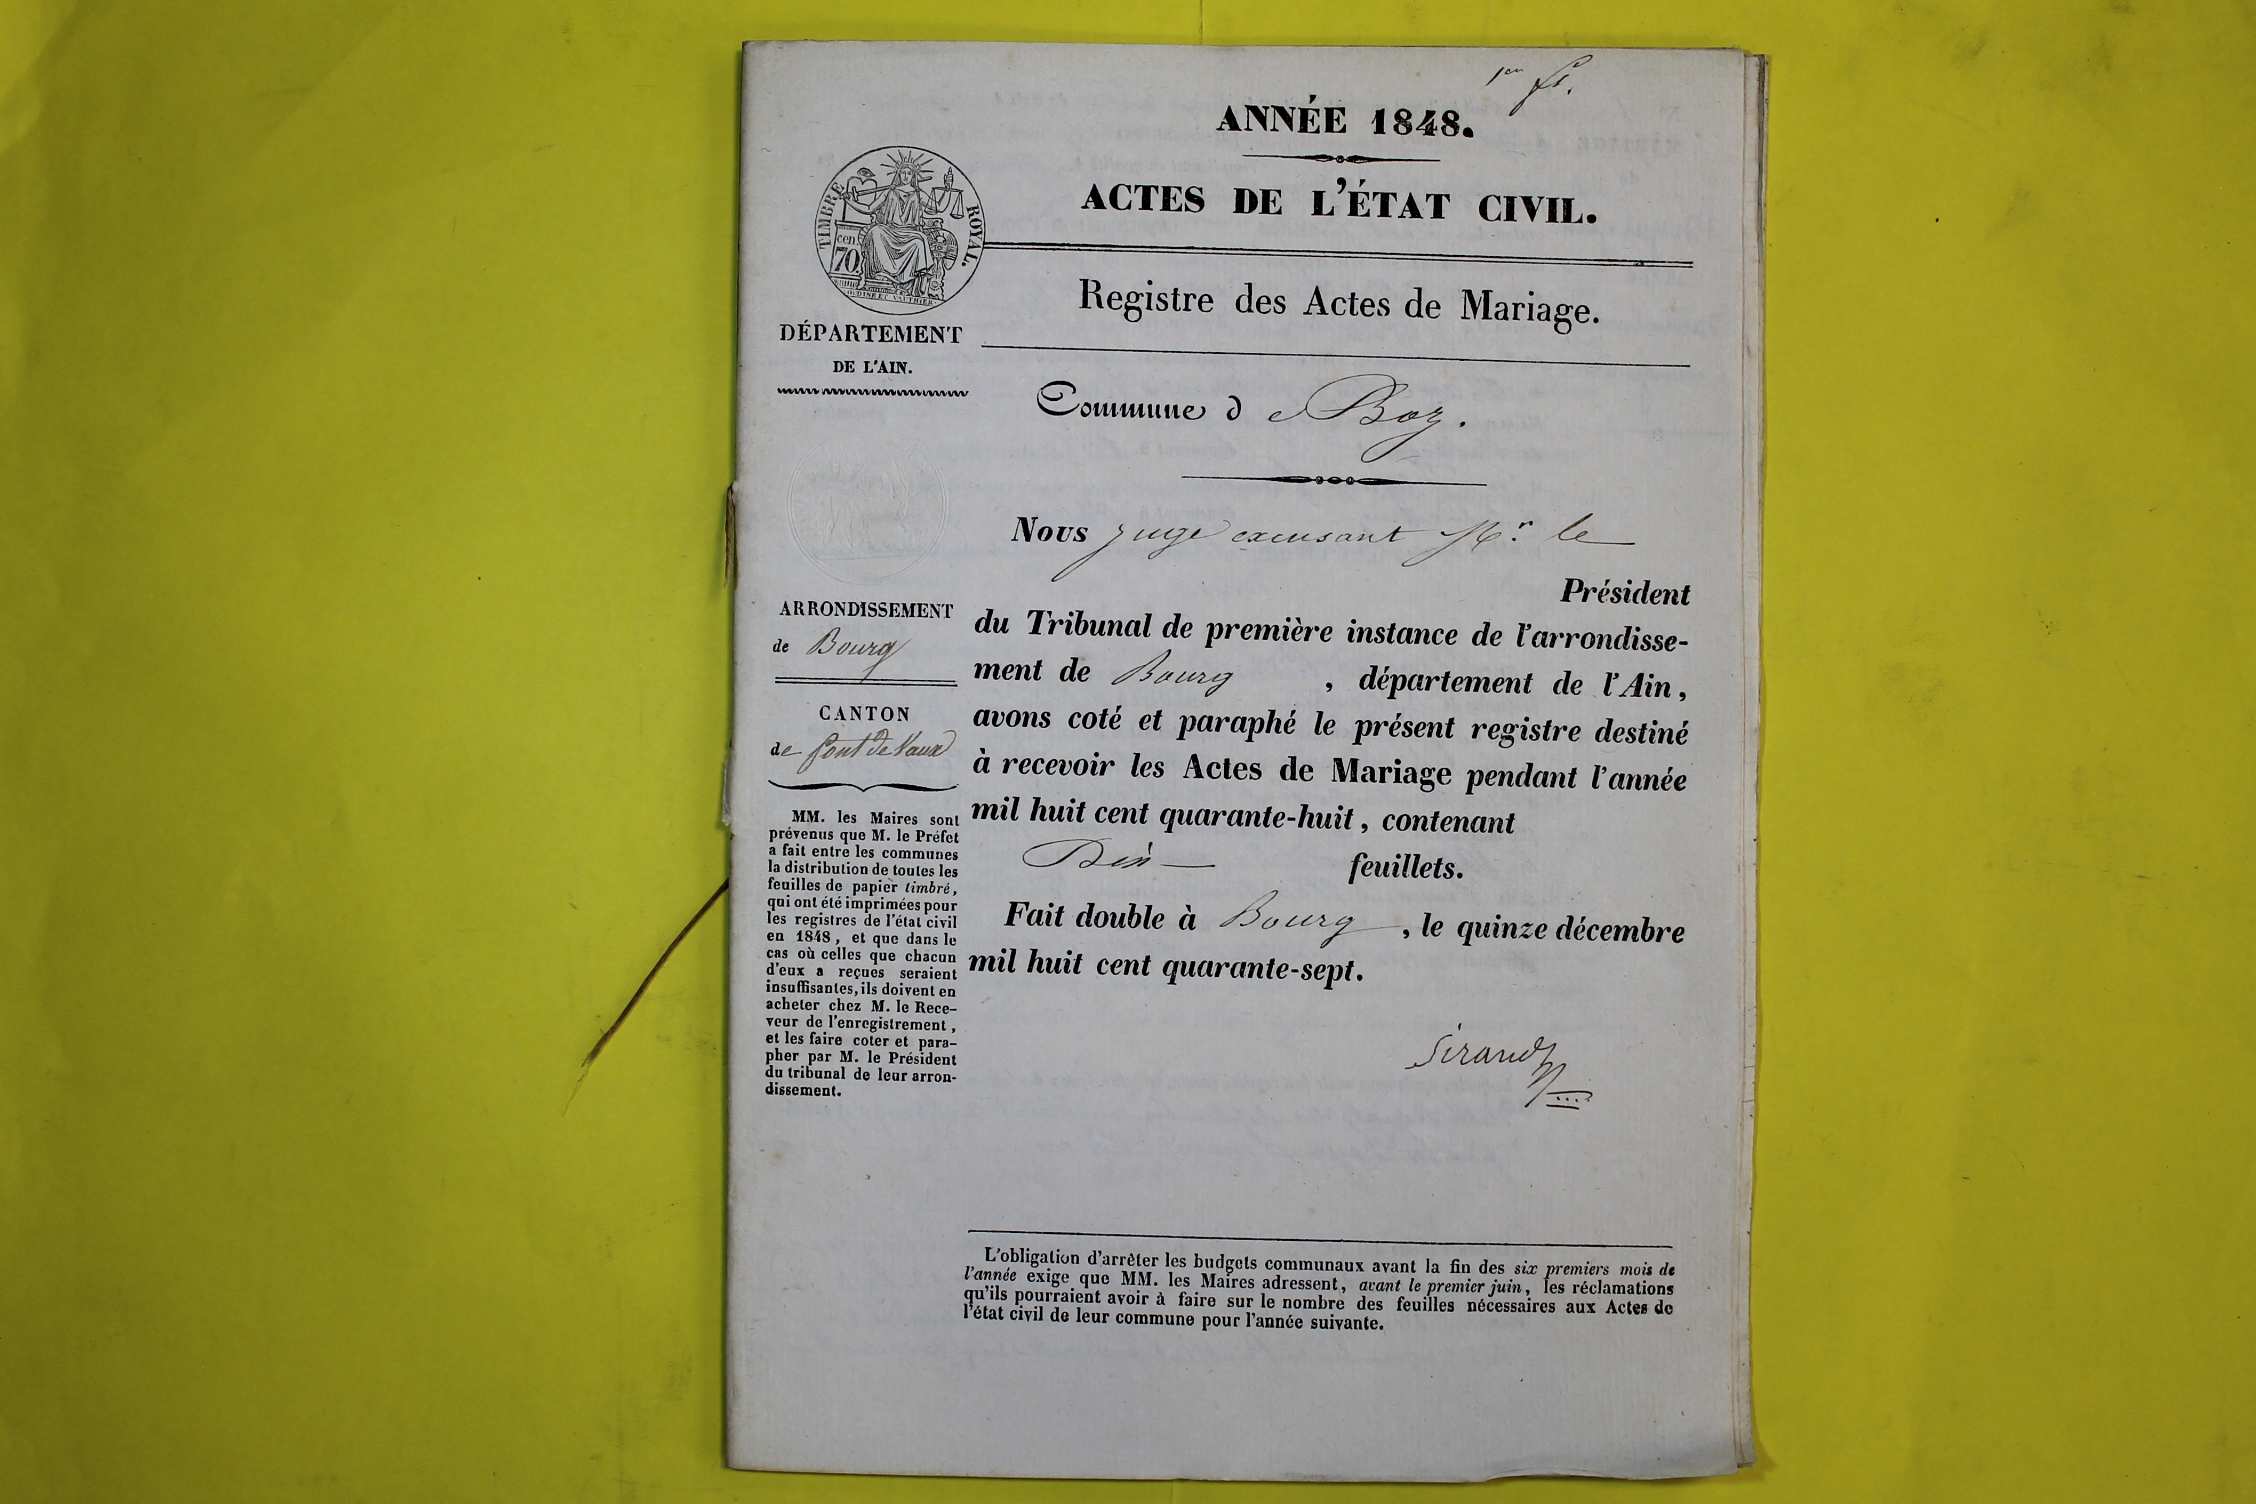 1er ft.
ANNÉE 1848.
ACTES DE L'ÉTAT CIVIL.
TIMBRE ROYAL.
cen.
70
Registre des Actes de Mariage.
DÉPARTEMENT
DE L'AIN.
Commune de Boz.
Nous juge excusant Mr. le
Président
du Tribunal de première instance de l'arrondisse-
ment de Bourg, département de l'Ain,
avons coté et paraphé le présent registre destiné
à recevoir les Actes de Mariage pendant l'année
mil huit cent quarante-huit, contenant
feuillets.
Fait double à Bourg, le quinze décembre
mil huit cent quarante-sept.
Sirand
ARRONDISSEMENT
de Bourg
CANTON
de Pont de Vaux
MM. les Maires sont
prévenus que M. le Préfet
a fait entre les communes
la distribution de toutes les
feuilles de papier timbré,
qui ont été imprimées pour
les registres de l'état civil
en 1848, et que dans le
cas où celles que chacun
d'eux a reçues seraient
insuffisantes, ils doivent en
acheter chez M. le Rece-
veur de l'enregistrement,
et les faire coter et para-
pher par M. le Président
du tribunal de leur arron-
dissement.
L'obligation d'arrêter les budgets communaux avant la fin des six premiers mois de
l'année exige que MM. les Maires adressent, avant le premier juin, les réclamations
qu'ils pourraient avoir à faire sur le nombre des feuilles nécessaires aux Actes de
l'état civil de leur commune pour l'année suivante.